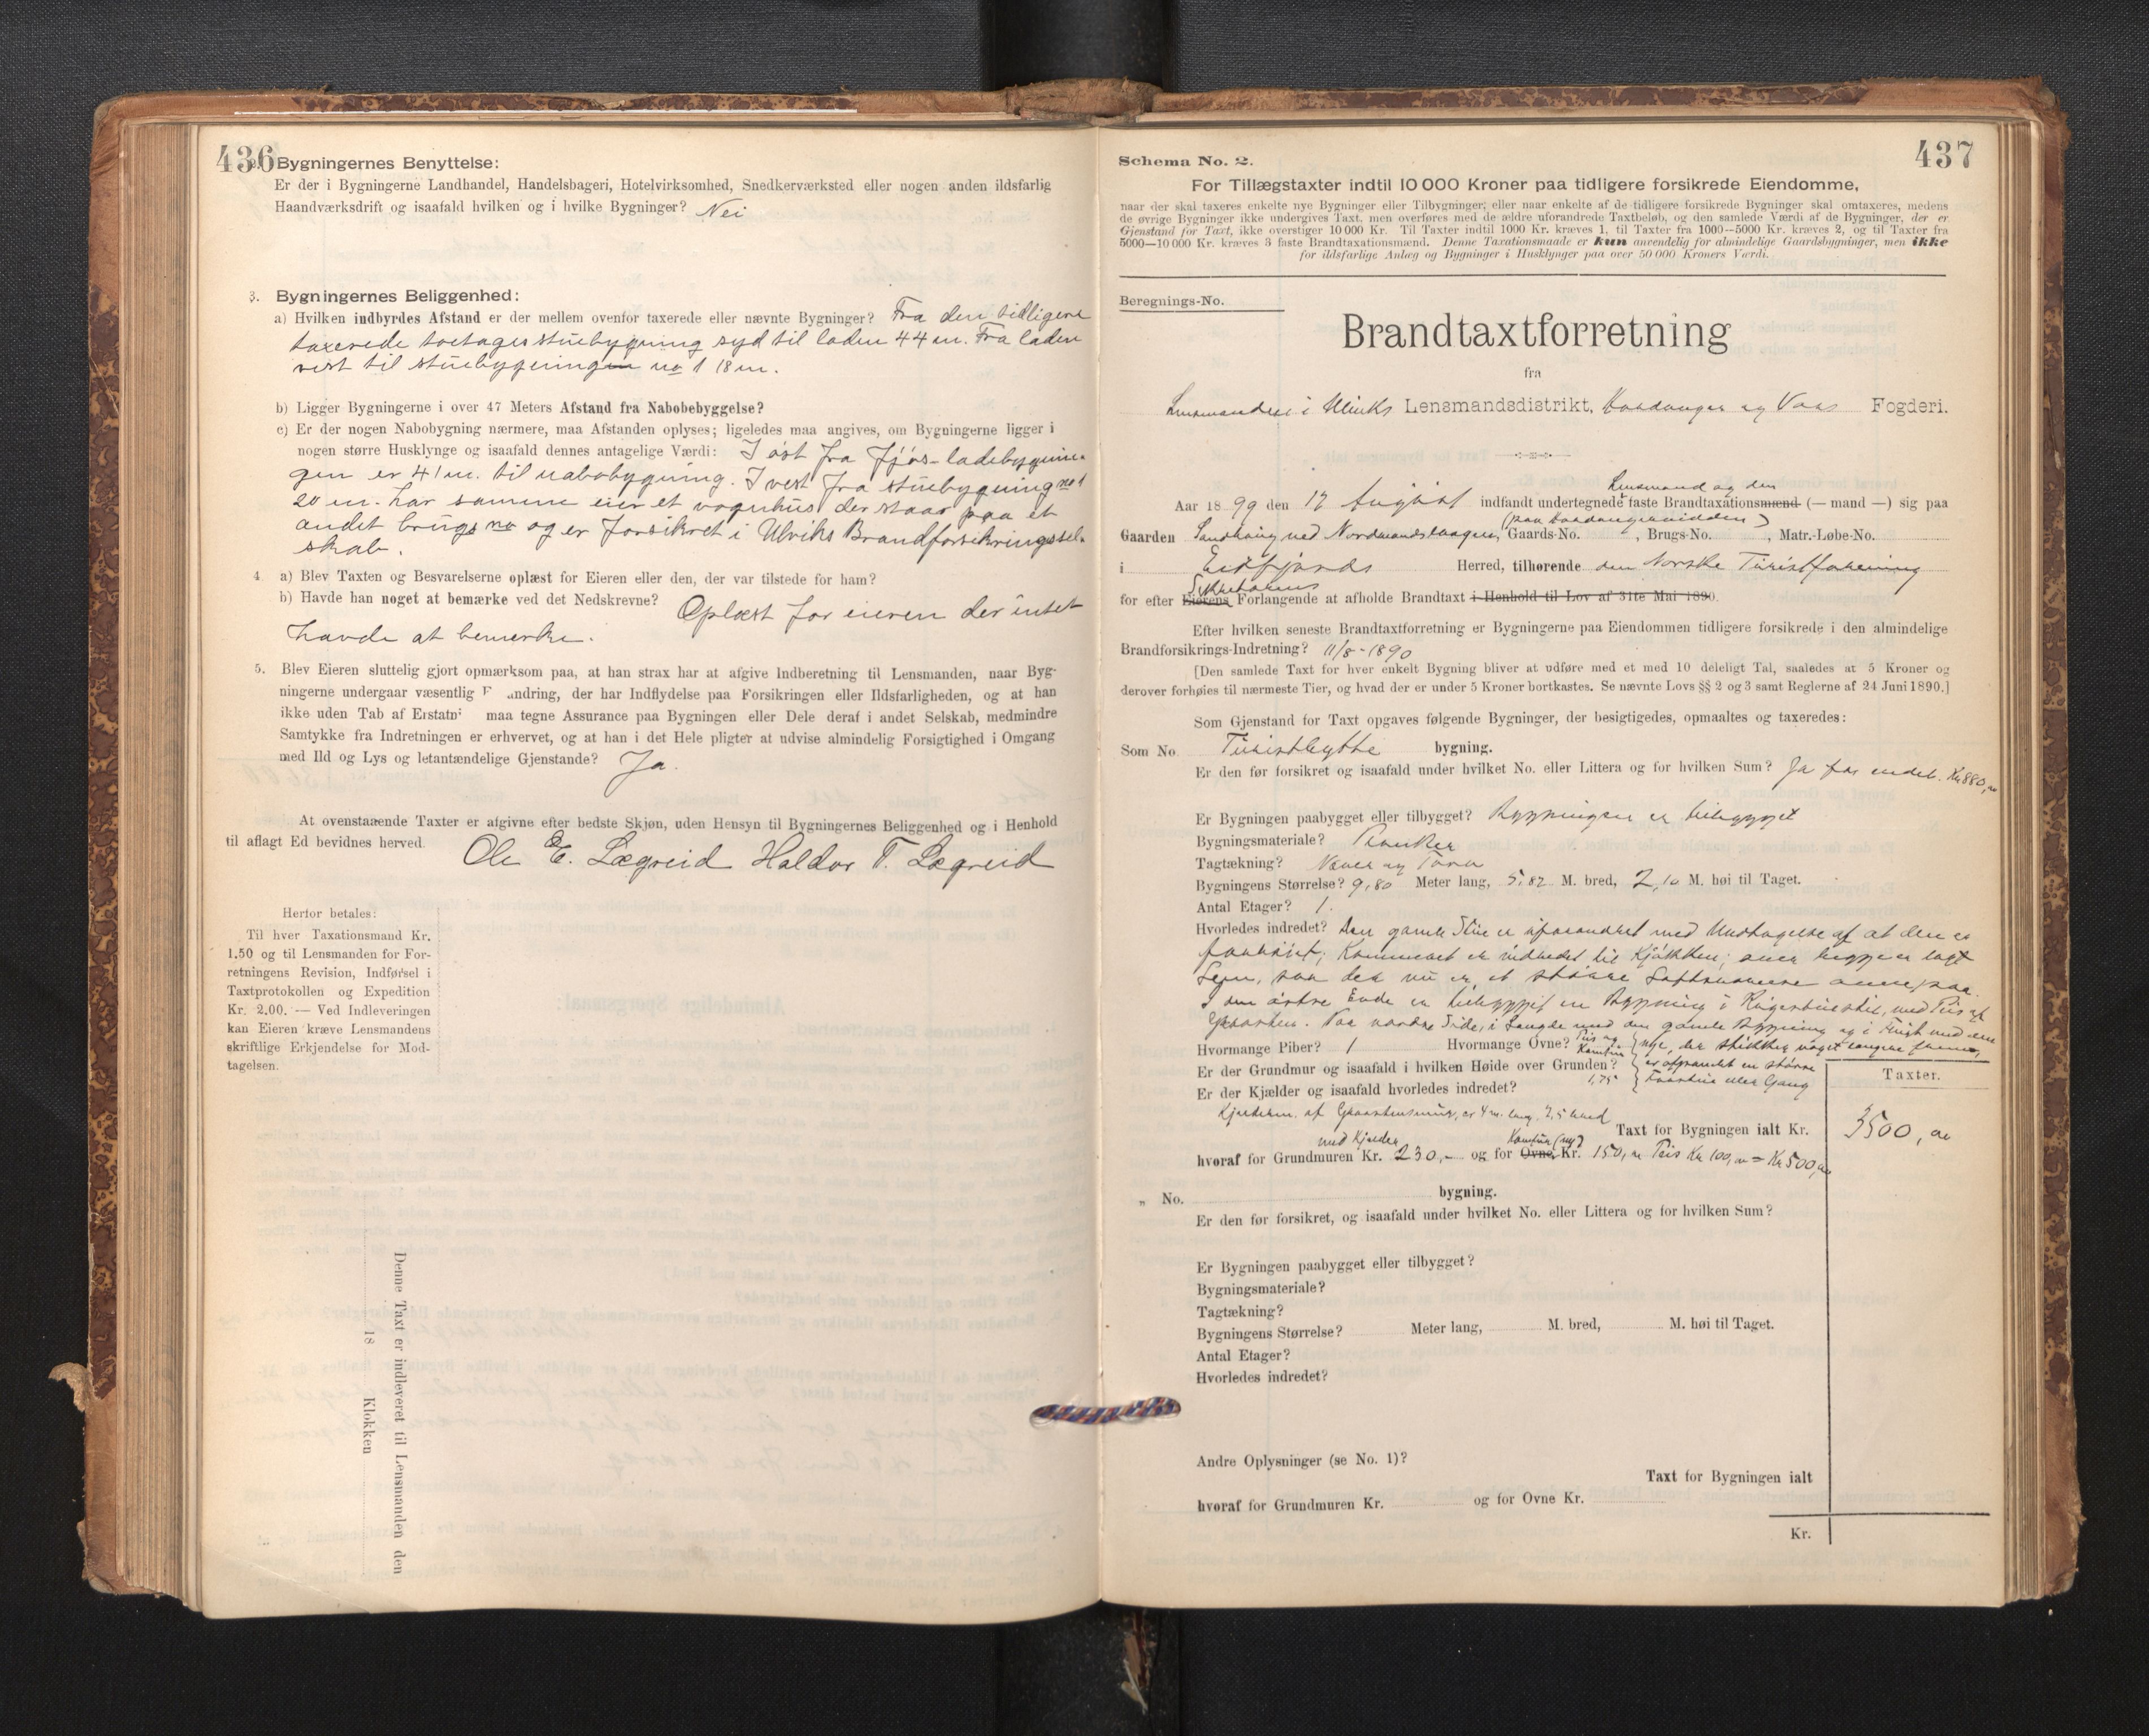 436
2. Bygningernes Benyttelse:
Er der i Bygningerne Landhandel, Handelsbageri, Hotelvirksomhed, Snedkerværksted eller nogen anden ildsfarlig
Haandværksdrift og isaafald hvilken og i hvilke Bygninger? Nei
3. Bygningernes Beliggenhed:
a) Hvilken indbyrdes Afstand er der mellem ovenfor taxerede eller nævnte Bygninger? Fra den tidligere
taxerede toetages stuebygning syd til laden 44 m. Fra laden
vest til stuebygningen no 1 18 m.
b) Ligger Bygningerne i over 47 Meters Afstand fra Nabobebyggelse?
c) Er der nogen Nabobygning nærmere, maa Afstanden oplyses; ligeledes maa angives, om Bygningerne ligger i
nogen større Husklynge og isaafald dennes antagelige Værdi: I øst fra Fjøs-ladebygnin-
gen er 41 m. til nabobygning. I vest fra stuebygning no 1
20 m. har samme eier et vognhus der staar paa et
andet brugs no og er forsikret i Ulviks Brandforsikringssel-
skab.
4. a) Blev Taxten og Besvarelserne oplæst for Eieren eller den, der var tilstede for ham?
b) Havde han noget at bemærke ved det Nedskrevne? Oplæst for eieren der intet
havde at bemerke.
5. Blev Eieren sluttelig gjort opmærksom paa, at han strax har at afgive Indberetning til Lensmanden, naar Byg-
ningerne undergaar væsentlig F andring, der har Indflydelse paa Forsikringen eller Ildsfarligheden, og at han
ikke uden Tab af Erstatni maa tegne Assurance paa Bygningen eller Dele deraf i andet Selskab, medmindre
Samtykke fra Indretningen er erhvervet, og at han i det Hele pligter at udvise almindelig Forsigtighed i Omgang
med Ild og Lys og letantændelige Gjenstande? Ja.
At ovenstaaende Taxter er afgivne efter bedste Skjøn, uden Hensyn til Bygningernes Beliggenhed og i Henhold
til aflagt Ed bevidnes herved. Ole E. Lægreid Haldor T. Lægreid
Herfor betales:
Til hver Taxationsmand Kr.
1.50 og til Lensmanden for For-
retningens Revision, Indførsel i
Taxtprotokollen og Expedition
Kr. 2.00. — Ved Indleveringen
kan Eieren kræve Lensmandens
skriftlige Erkjendelse for Mod-
tagelsen.
Denne Taxt er indleveret til Lensmanden den
18 Klokken
437
Schema No. 2.
For Tillægstaxter indtil 10 000 Kroner paa tidligere forsikrede Eiendomme,
naar der skal taxeres enkelte nye Bygninger eller Tilbygninger, eller naar enkelte af de tidligere forsikrede Bygninger skal omtaxeres, medens
de øvrige Bygninger ikke undergives Taxt, men overføres med de ældre uforandrede Taxtbeløb, og den samlede Værdi af de Bygninger, der er
Gjenstand for Taxt, ikke overstiger 10 000 Kr. Til Taxter indtil 1000 Kr. kræves 1, til Taxter fra 1000—5000 Kr. kræves 2, og til Taxter fra
5000—10 000 Kr. kræves 3 faste Brandtaxationsmænd. Denne Taxationsmaade er kun anvendelig for almindelige Gaardsbygninger, men ikke
for ildsfarlige Anlæg og Bygninger i Husklynger paa over 50 000 Kroners Værdi.
Beregnings-No.
Brandtaxtforretning
fra
Lensmanden i Ulviks Lensmandsdistrikt, Hardanger og Voss Fogderi.
Lensmand og den
Aar 1899 den 12 August indfandt undertegnede faste Brandtaxationsmænd (— mand —) sig paa
(paa Hardangervidden)
Gaarden Sandhaug ved Nordmandslaagen, Gaards-No. , Brugs-No. , Matr.-Løbe-No.
i Eidfjords Herred, tilhørende den Norske Turistforening
Sekretærens
for efter Eierens Forlangende at afholde Brandtaxt i Henhold til Lov af 31te Mai 1890.
Efter hvilken seneste Brandtaxtforretning er Bygningerne paa Eiendommen tidligere forsikrede i den almindelige
Brandforsikrings-Indretning? 11/8 - 1890
[Den samlede Taxt for hver enkelt Bygning bliver at udføre med et med 10 deleligt Tal, saaledes at 5 Kroner og
derover forhøies til nærmeste Tier, og hvad der er under 5 Kroner bortkastes. Se nævnte Lovs §§ 2 og 3 samt Reglerne af 24 Juni 1890.]
Som Gjenstand for Taxt opgaves følgende Bygninger, der besigtigedes, opmaaltes og taxeredes:
Som No. Turisthytte bygning.
Er den før forsikret og isaafald under hvilket No. eller Littera og for hvilken Sum? Ja for endel. Kr 880,00
Er Bygningen paabygget eller tilbygget? Bygningen er tilbygget
Bygningsmateriale? Planker
Tagtækning? Næver og Torv
Bygningens Størrelse? 9,80 Meter lang, 5,82 M. bred, 2,10 M. høi til Taget.
Antal Etager? 1.
Hvorledes indret? Den gamle Stue er uforandret med Undtagelse af at den er
; Kammeret er indredet til Kjøkken; over begge er lagt
Lem, saa der nu er et større Loftsrum ovenpaa.
I den østre Ende er tilbygget en Bygning i , med Peis af
Graasten. Paa nordre Side, i Længde med den gamle Bygning og i Flugt med den
Hvormange Piber? 1 Hvormange Ovne? Peis og Komfur nye, der stikker noget længere frem,
Er der Grundmur og isaafald i hvilken Høide over Grunden? 1,75 er afpanelet en større
Er der Kjælder og isaafald hvorledes indredet? Forstue eller Gang
Kjælderen af Graastensmur, er 4 m. lang, 2,5 bred
Taxter.
Taxt for Bygningen ialt Kr. 3500,00
med Kjælder Komfur (ny)
hvoraf for Grundmuren Kr. 230,- og for Ovne Kr. 150,00 Peis Kr 100,00 = Kr 500,00
„ No. bygning.
Er den før forsikret, og isaafald under hvilket No. eller Littera og for hvilken Sum?
Er Bygningen paabygget eller tilbygget?
Bygningsmateriale?
Tagtækning?
Bygningens Størrelse? Meter lang, M. bred, M. høi til Taget.
Antal Etager?
Hvorledes indredet?
Andre Oplysninger (se No. 1)?
Taxt for Bygningen ialt
hvoraf for Grundmuren Kr. og for Ovne Kr.
Kr.